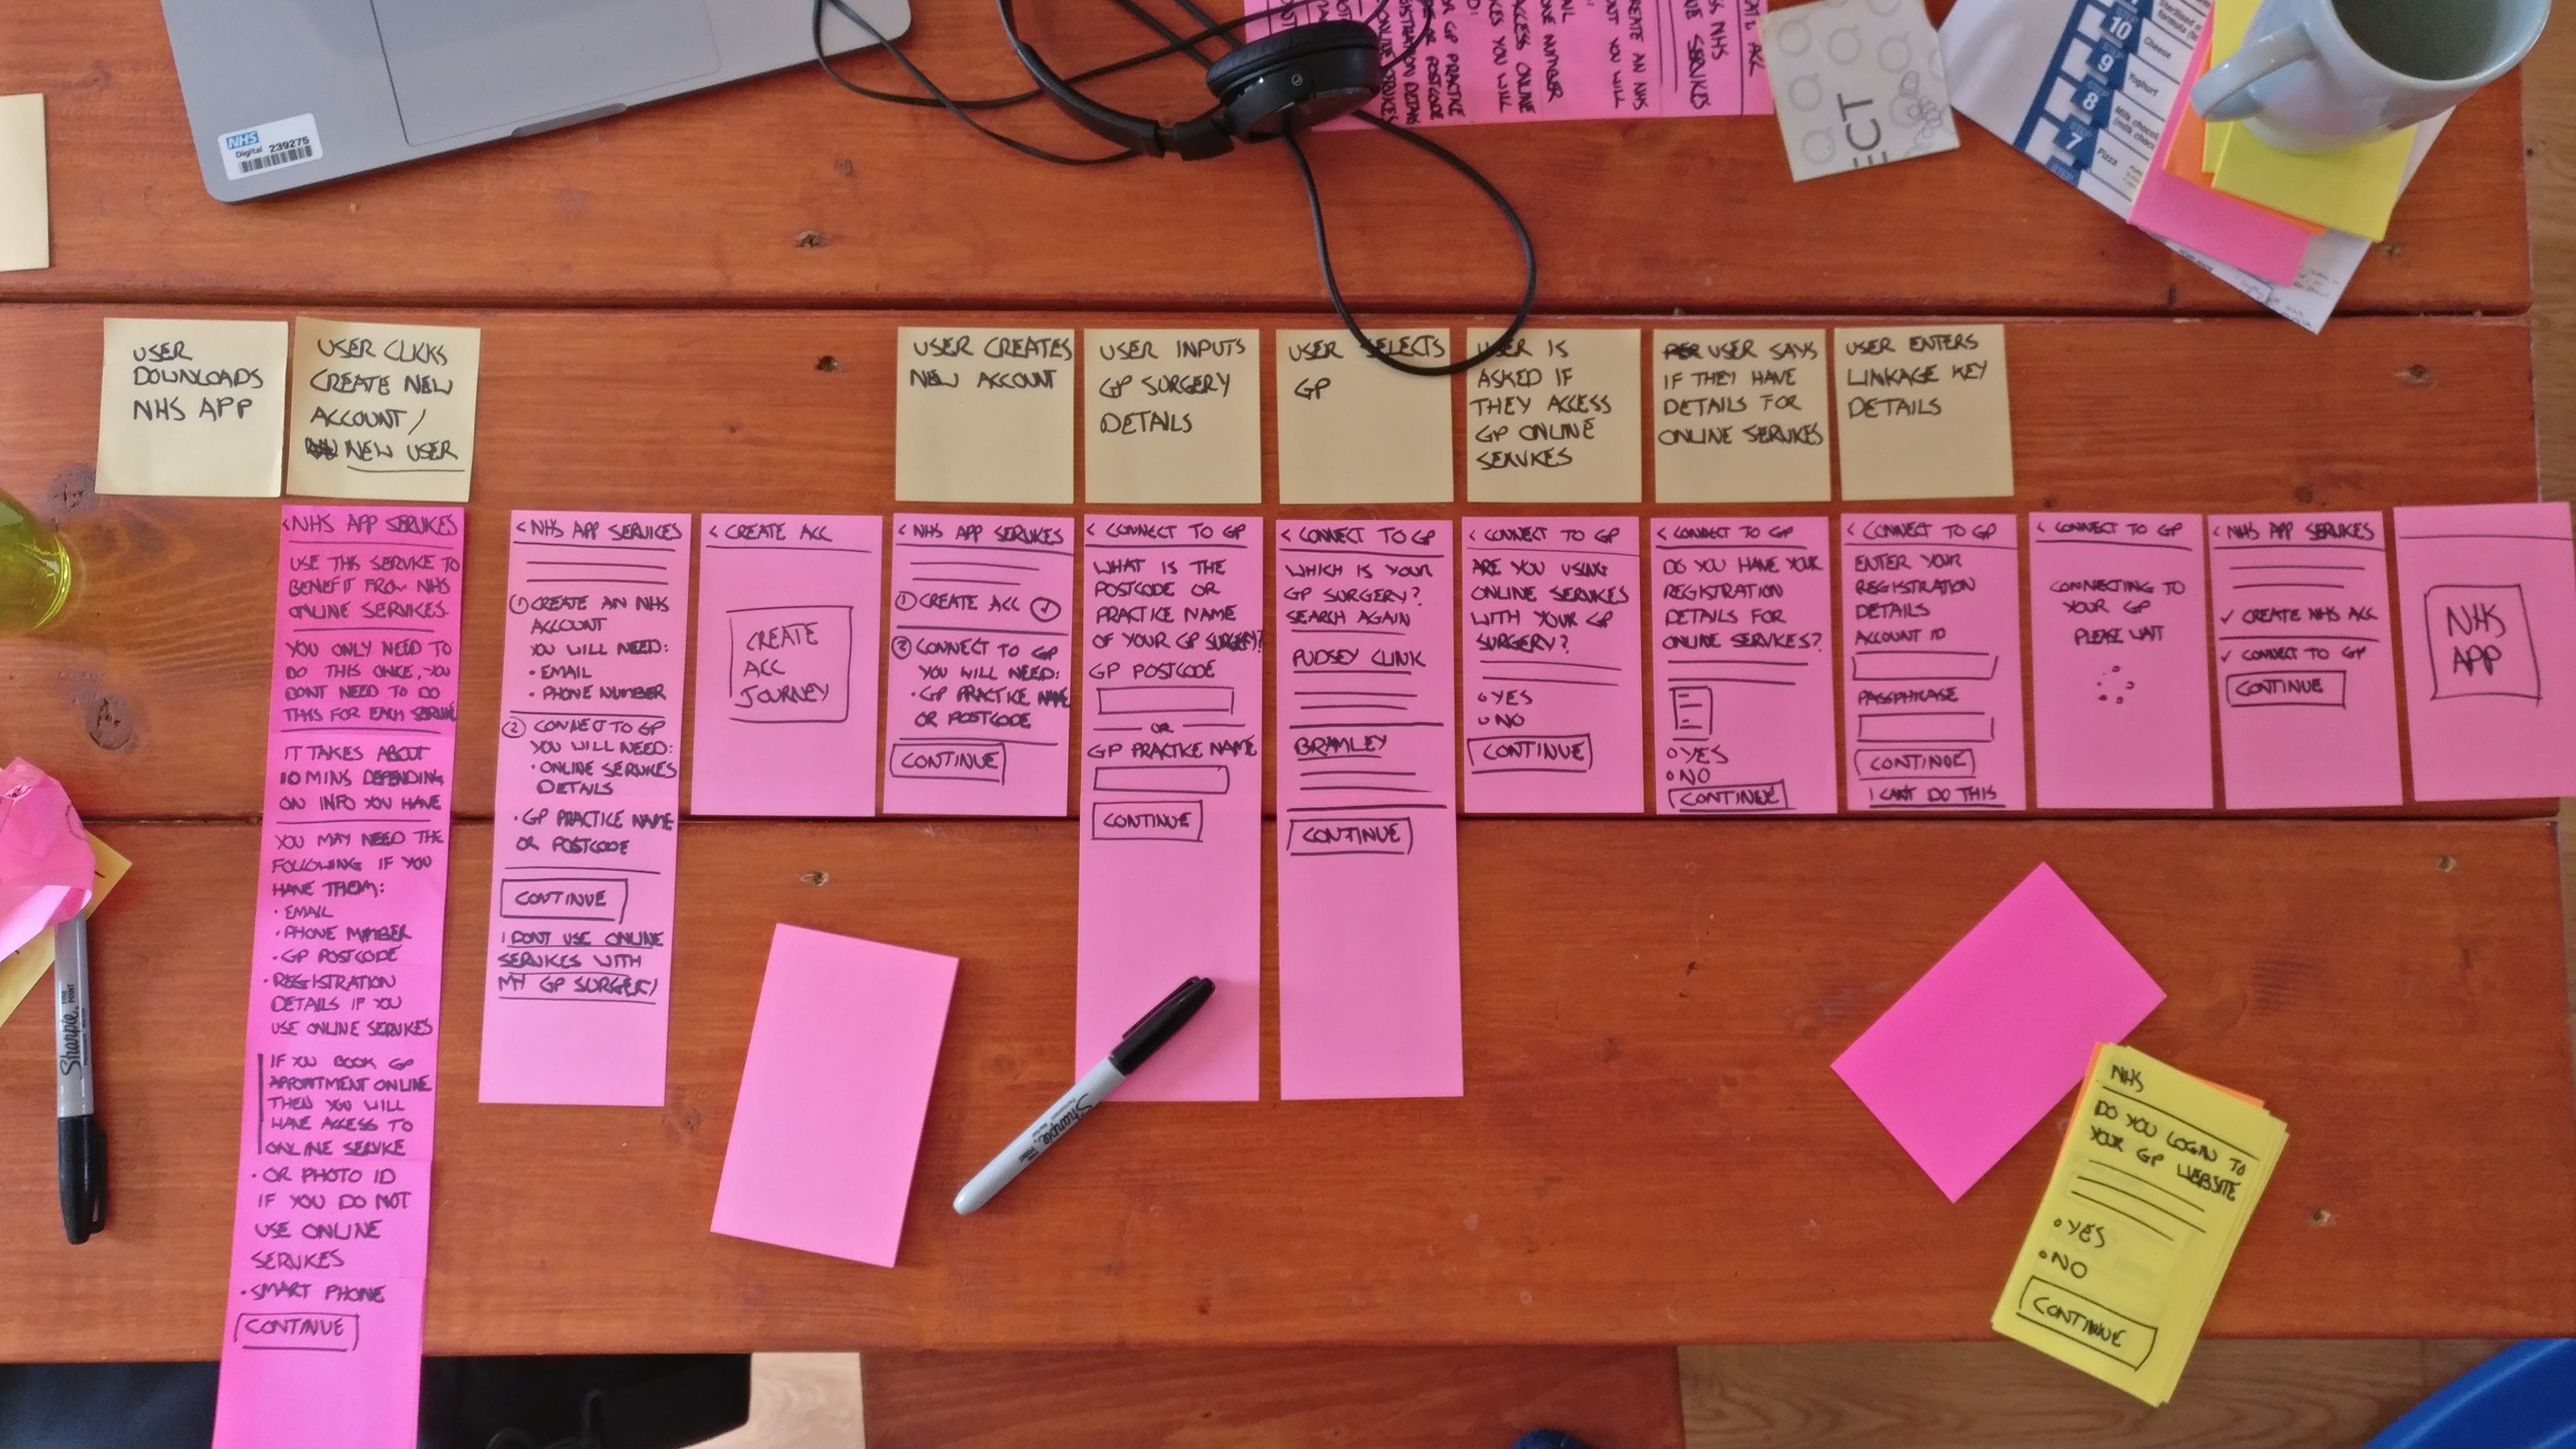 NHS
Digital 239275
ECT
10
Cheese
STEP
9
Yoghurt
STEP
8
STEP
7
Pizza
USER
DOWNLOADS
NHS APP
USER CLICKS
CREATE NEW
ACCOUNT /
NEW USER
USER CREATES
NEW ACCOUNT
USER INPUTS
GP SURGERY
DETAILS
USER SELECTS
GP
USER IS
ASKED IF
THEY ACCESS
GP ONLINE
SERVICES
USER SAYS
IF THEY HAVE
DETAILS FOR
ONLINE SERVICES
USER ENTERS
LINKAGE KEY
DETAILS
< NHS APP SERVICES
USE THIS SERVICE TO
BENEFIT FROM NHS
ONLINE SERVICES.
YOU ONLY NEED TO
DO THIS ONCE, YOU
DONT NEED TO DO
THIS FOR EACH SERVICE
IT TAKES ABOUT
10 MINS DEPENDING
ON INFO YOU HAVE
YOU MAY NEED THE
FOLLOWING IF YOU
HAVE THEM:
• EMAIL
• PHONE NUMBER
• GP POSTCODE
• REGISTRATION
DETAILS IF YOU
USE ONLINE SERVICES
IF YOU BOOK GP
APPOINTMENT ONLINE
THEN YOU WILL
HAVE ACCESS TO
ONLINE SERVICE
• OR PHOTO ID
IF YOU DO NOT
USE ONLINE
SERVICES
• SMART PHONE
CONTINUE
< NHS APP SERVICES
① CREATE AN NHS
ACCOUNT
YOU WILL NEED:
• EMAIL
• PHONE NUMBER
② CONNECT TO GP
YOU WILL NEED:
• ONLINE SERVICES
DETAILS
• GP PRACTICE NAME
OR POSTCODE
CONTINUE
I DONT USE ONLINE
SERVICES WITH
MY GP SURGERY
< CREATE ACC
CREATE
ACC
JOURNEY
< NHS APP SERVICES
① CREATE ACC ✓
② CONNECT TO GP
YOU WILL NEED:
• GP PRACTICE NAME
OR POSTCODE
CONTINUE
< CONNECT TO GP
WHAT IS THE
POSTCODE OR
PRACTICE NAME
OF YOUR GP SURGERY?
GP POSTCODE
OR
GP PRACTICE NAME
CONTINUE
< CONNECT TO GP
WHICH IS YOUR
GP SURGERY?
SEARCH AGAIN
PUDSEY CLINIC
BRAMLEY
CONTINUE
< CONNECT TO GP
ARE YOU USING
ONLINE SERVICES
WITH YOUR GP
SURGERY?
○ YES
○ NO
CONTINUE
< CONNECT TO GP
DO YOU HAVE YOUR
REGISTRATION
DETAILS FOR
ONLINE SERVICES?
○ YES
○ NO
CONTINUE
< CONNECT TO GP
ENTER YOUR
REGISTRATION
DETAILS
ACCOUNT ID
PASSPHRASE
CONTINUE
I CANT DO THIS
< CONNECT TO GP
CONNECTING TO
YOUR GP
PLEASE WAIT
< NHS APP SERVICES
✓ CREATE NHS ACC
✓ CONNECT TO GP
CONTINUE
NHS
APP
Sharpie
Sharpie
NHS
DO YOU LOGIN TO
YOUR GP WEBSITE
○ YES
○ NO
CONTINUE